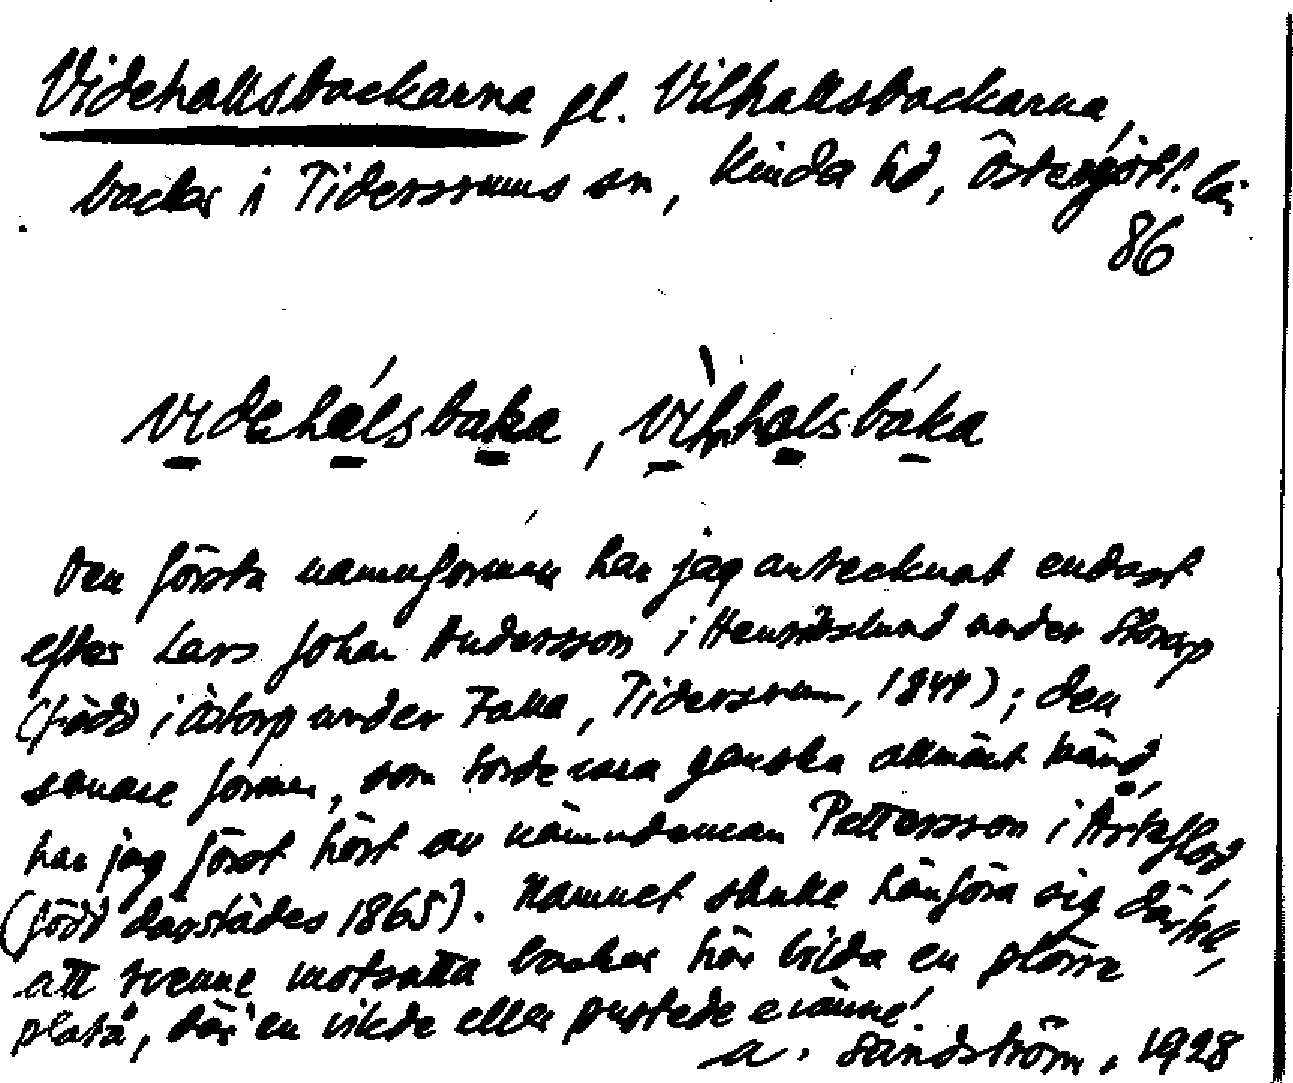 Videhallsbackarna el. Vilhallsbackarna,
backar i Tidersrums sn, Kinda hd, Östergötl. län
86
videhalsbaka, vilhalsbaka
Den första namnformen har jag antecknat endast
efter Lars Johan Andersson i Henrikslund under Storup
(född i Åstorp under Falla, Tidersrum, 1844); den
senare formen, som torde vara ganska allmänt känd,
har jag först hört av nämndeman Pettersson i
(född därstädes 1865). Namnet skulle hänföra sig därtill,
att tvenne motsatta backar här bilda en större
platå, där en vilde eller pustade evänne!
A. Sandström, 1928